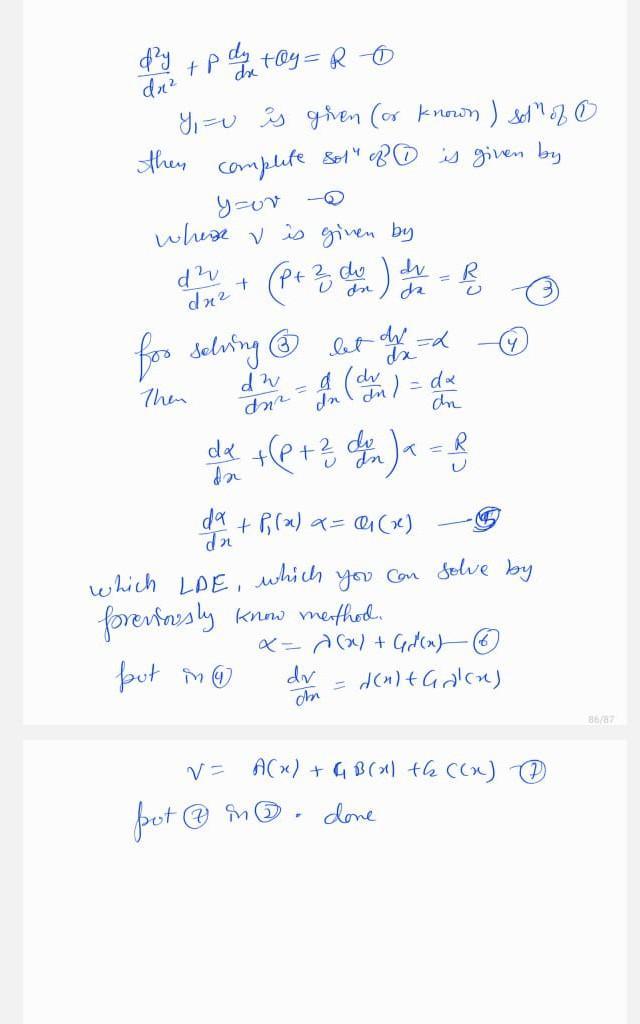 d²y/dx² + P dy/dx + Qy = R —①
y₁=u is given (or known) solⁿ of ①
then complete solⁿ of ① is given by
y=uv —②
where v is given by
d²v/dx² + (P + 2/u du/dx) dv/dx = R/u —③
for solving ③ let dv/dx = α —④
Then d²v/dx² = d/dx (dv/dx) = dα/dx
dα/dx + (P + 2/u du/dx) α = R/u
dα/dx + P₁(x) α = Q₁(x) —⑤
which LDE, which you can solve by
previously know method.
α = λ(x) + C₁λ'(x) —⑥
put in ④ dv/dx = λ(x) + C₁λ'(x)
86/87
v = A(x) + C₁ B(x) + C₂ C(x) —⑦
put ⑦ in ②. done